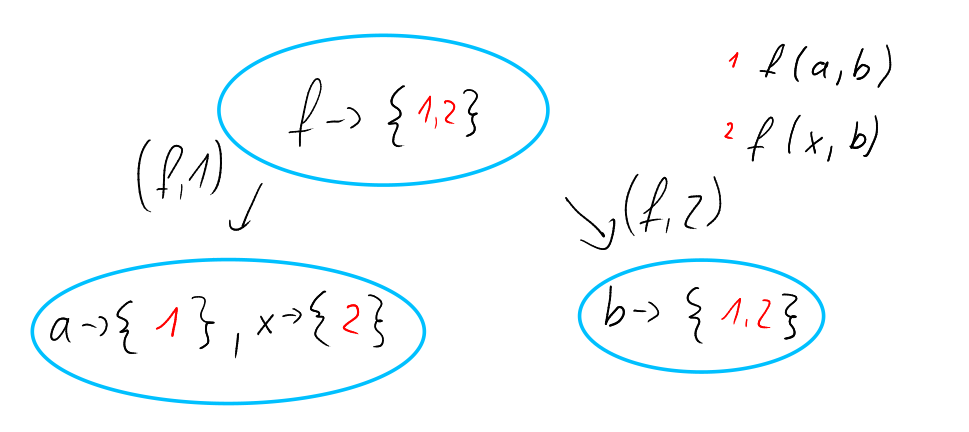 f -> {1,2}
1 f(a,b)
2 f(x,b)
(f,1)
(f,2)
a->{1}, x->{2}
b-> {1,2}